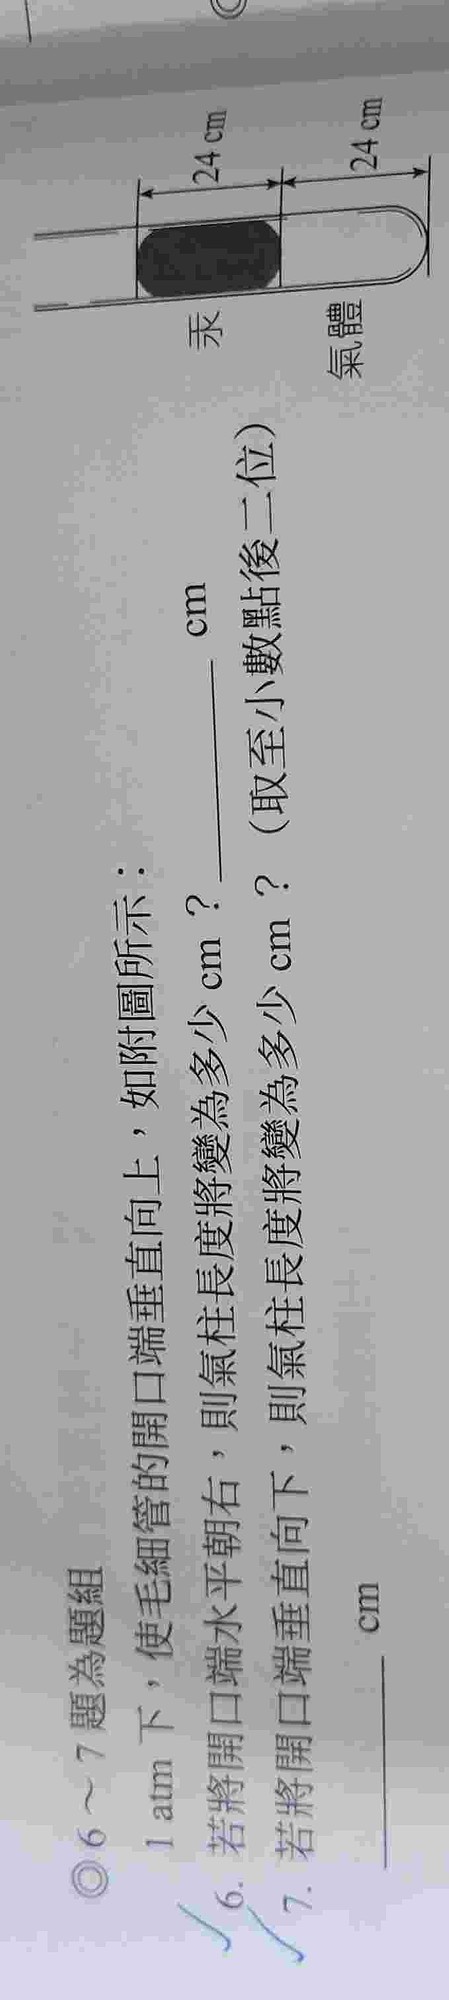 ◎6～7題為題組
1 atm 下，使毛細管的開口端垂直向上，如附圖所示：
6. 若將開口端水平朝右，則氣柱長度將變為多少 cm？________ cm
7. 若將開口端垂直向下，則氣柱長度將變為多少 cm？（取至小數點後二位）
________ cm
汞
24 cm
氣體
24 cm